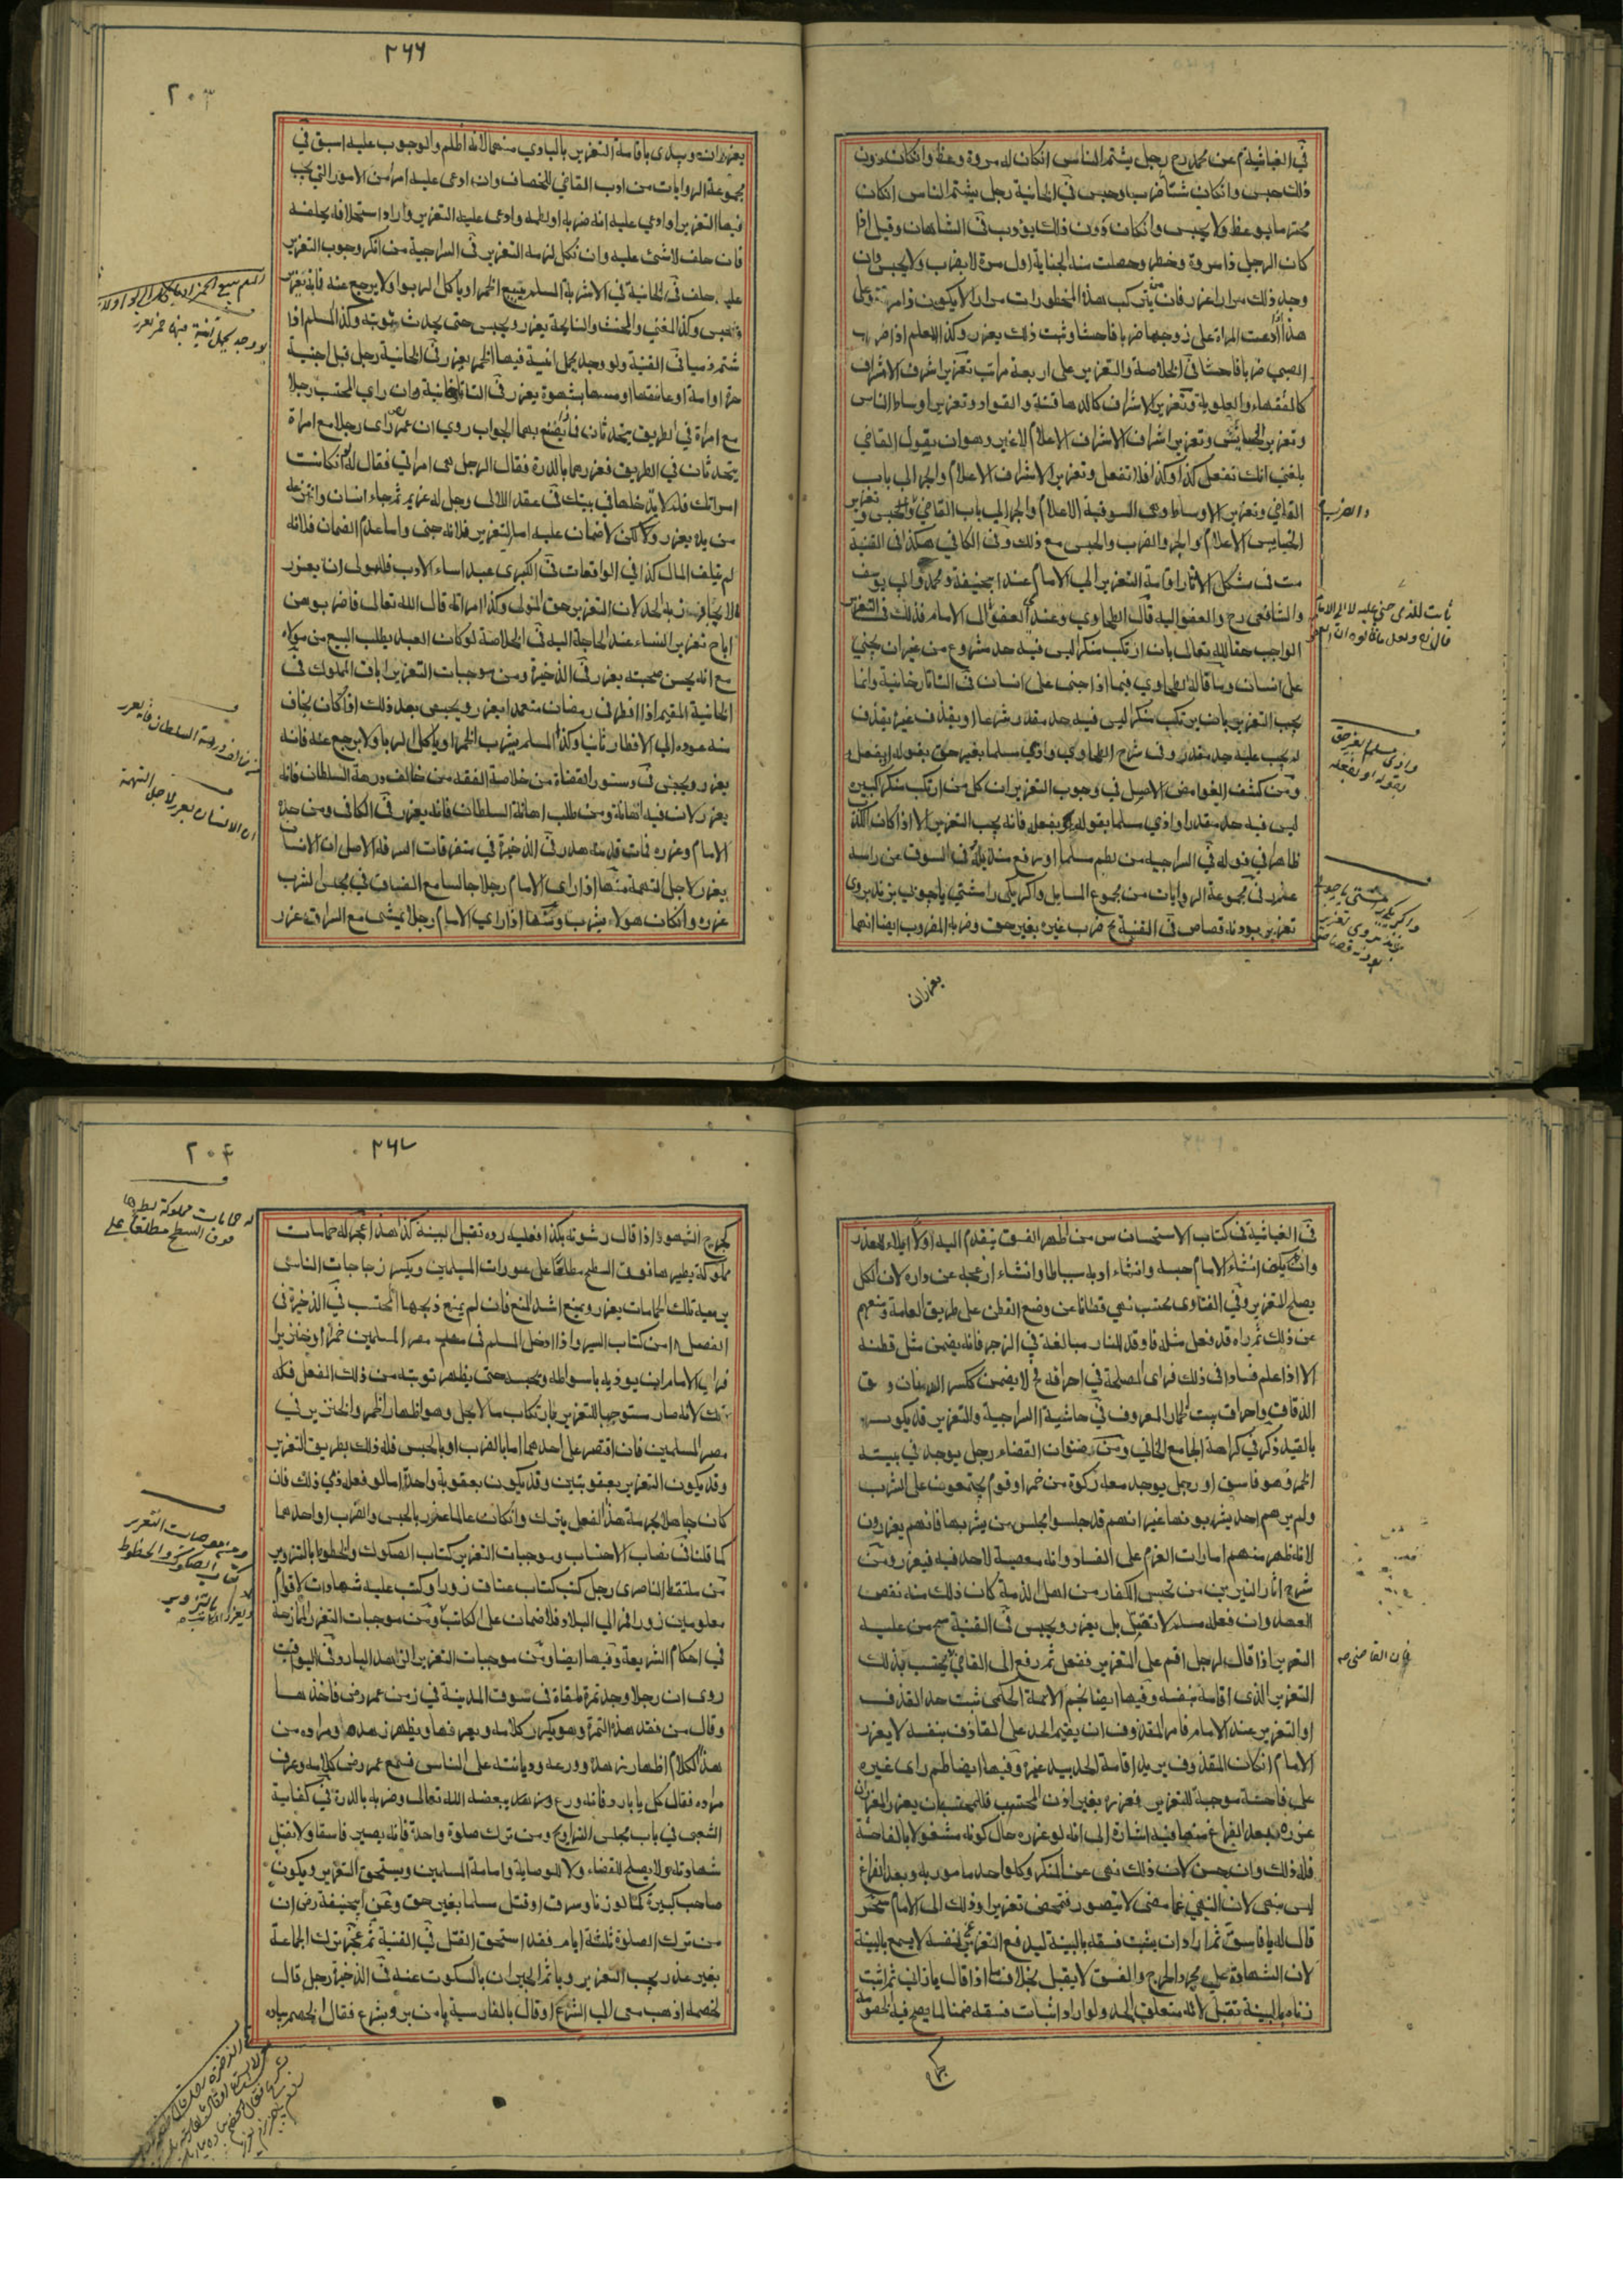 في الغياثية م عن محمد رح رجل يشتم الناس ان كان له مروة وعظ وان كان دون
ذلك حبس وان كان شتاما ضرب وحبس في الخانية رجل يشتم الناس ان كان
محترما يوعظ ولا يحبس وان كان دون ذلك يؤدب في الشاهان وقيل اذا
كان الرجل ذا مروة وخطر وحصلت منه الجناية اول مرة لا يضرب ولا يحبس وان
وجد ذلك مرارا عزر فان من يرتكب هذه المخطورات مرارا لا يكون ذا مروة وعلى
هذا اذا ادعت المراة على زوجها ضربا فاحشا وثبت ذلك يعزر وكذا المعلم اذا ضرب
الصبي ضربا فاحشا في الخلاصة والتعزير على اربعة مراتب تعزير اشرف الاشراف
كالفقهاء والعلوية وتعزير الاشراف كالدهاقنة والقواد وتعزير اوساط الناس
وتعزير الخسايس وتعزير اشراف الاشراف الاعلام لا غير وهو ان يقول القاضي
بلغني انك تفعل كذا وكذا فلا تفعل وتعزير الاشراف الاعلام والجر الى باب
القاضي وتعزير الاوساط وهي السوقية الاعلام والجر الى باب القاضي والحبس وتعزير
الخسايس الاعلام والجر والضرب والحبس مع ذلك وفي الكافي هكذا في القنية
مت في مشكل الاثار اقامة التعزير الى الامام عند ابيحنيفة ومحمد وابي يوسف
والشافعي رح والعفو اليه قال الطحاوي وعندي العفو الى الامام فذلك في التعزير
الواجب حقا لله تعالى بان ارتكب منكرا ليس فيه حد مشروع من غير ان يجني
على انسان وما قاله الطحاوي فيما اذا جنى على انسان في التاتارخانية وانما
يجب التعزير بان يرتكب منكرا ليس فيه حد مقدر شرعا او يقذف غيره بقذف
لم يجب عليه حد مقدر وفي شرح الطحاوي واذي مسلما بغير حق بقوله او بفعل
ومن كشف الغوامض الاصل في وجوب التعزير ان كل من ارتكب منكرا كبيرة
ليس فيه حد مقدر او اذي مسلما بقوله او بفعل فانه يجب التعزير الا اذا كان الكذب
ظاهرا في قوله في السراجيه من لطم مسلما او رفع منديله في السوق عن راسه
عذر في مجموعة الروايات من مجموع المسايل واكر يكى را مشتي يا چوب بزند بروى
تعزير بود نه قصاص في القنية ضرب غيره بغير حق وضربه المضروب ايضا انهما
والضرب
ثابت للذي جنى عليه لا الى الامام
واذي مسلما بغير حق
بقوله او بفعله
واكر يكى را مشتي يا چوب
بزند بروى تعزير
بود نه قصاص
يعزران
٢٦٦
٢٠٣
يعزران ويبدى باقامة التعزير بالبادي منهما لانه اظلم والوجوب عليه اسبق في
مجموعة الروايات من ادب القاضي للخصاف وان ادعى عليه امرا من الامور التي يجب
فيها التعزير او ادعى عليه انه ضربه او لطمه وادعى عليه التعزير واراد استحلافه يحلفه
فان حلف لا شئ عليه وان نكل لزمه التعزير في السراجية من انكر وجوب التعزير
عليه حلف في الخانية في الاشربة المسلم يبيع الخمر او ياكل الربوا ولا يرجع عنه فانه يعزر
ويحبس وكذا المغني والمخنث والنايحة يعزر ويحبس حتى يحدث توبته وكذا المسلم اذا
شتم ذميا في القنية ولو وجد يحمل انية فيها الخمر يعزر في الخانية رجل قبل اجنبية
حرة او امة او عانقها او مسها بشهوة يعزر في التاتارخانية وان راى المحتسب رجلا
مع امراة في الطريق يتحدثان فما يصنع بهما الجواب روي ان عمر رض راى رجلا مع امراة
يتحدثان في الطريق فعزرهما بالدرة فقال الرجل هى امراتي فقال له ان كانت
امراتك فلم لا تدخلها في بيتك في عقد اللالى رجل له غريم ثم جاء انسان وانتزعه
من يده يعزر ولكن لا ضمان عليه اما التعزير فلانه جنى واما عدم الضمان فلانه
لم يتلف المال كذا في الواقعات في الكبرى عبد اساء الادب فللمولى ان يعزر
ولا يجاوز به الحد لان التعزير حق المولى وكذا امراته قال الله تعالى فاضربوهن
اباح تعزير النساء عند الحاجة اليه في الخلاصة لو كان العبد يطلب البيع من مولاه
مع انه يحسن صحبته يعزر في الذخيرة ومن موجبات التعزير اباق المملوك في
الخانية المقيم اذا افطر في رمضان متعمدا يعزر ويحبس بعد ذلك اذا كان يخاف
منه عوده الى الافطار ثانيا وكذا المسلم يشرب الخمر او ياكل الربا ولا يرجع عنه فانه
يعزر ويحبس في دستور القضاة من خلاصة الفقه من خالف درهة السلطان فانه
يعزر لان فيه اهانة ومن طلب اهانة السلطان فانه يعزر في الكافي ومن حده
الامام او عزره فمات فدمه هدر في الذخيرة في متفرقات السرقة الاصل ان الانسان
يعزر لاجل التهمة منها اذا راى الامام رجلا جالسا مع الفساق في مجلس الشرب
عزره وان كان هو لا يشرب ومنها اذا راي الامام رجلا يمشى مع السراق عزر
لو وجد يحمل انية فيها خمر يعزر
ان الانسان يعزر لاجل التهمة
في الغياثية في كتاب الاستحسان س من اظهر الفسق يتقدم اليه اولا ابلاء للعذر
وان لم يكف ان شاء الامام حبسه وان شاء ادبه سياطا وان شاء ازعجه عن داره لان الكل
يصلح للتعزير وفي الفتاوى محتسب نهى قطانا عن وضع القطن على طريق العامة ومنعهم
عن ذلك ثم راه قد فعل مثله فاوقد النار مبالغة في الزجر فانه يضمن مثل قطنه
الا اذا علم فسادا في ذلك فراى المصلحة في احراقه فح لا يضمن ككسر الدنان و ق
الذقاق واحراق بيت الخمار المعروف في حاشية السراجية والتعزير قد يكون
بالقيد ذكر في كراهة الجامع الخاني ومن صنوان القضاء رجل يوجد في بيته
الخمر وهو فاسق او رجل يوجد معه زكوة من خمر او قوم يجتمعون على الشرب
ولم يرهم احد يشربونها غير انهم قد جلسوا مجلس من يشربها فانهم يعزرون
لانه ظهر منهم امارات العزم على الفساد وانه معصية لا حد فيه فيعزر ومن
شرح اثار النيرين من تجسس الكفار من اهل الذمة كان ذلك منه نقض
العهد وان فعله مسلم لا تقتل بل يعزر ويحبس في القنية سم من عليه
التعزير اذا قال لرجل اقم على التعزير ففعل ثم رفع الى القاضي يحتسب بذلك
التعزير الذي اقامه بنفسه وفيها ايضا نجم الائمة الحكمى ثبت حد القذف
او التعزير عند الامام فامر المقذوف ان يقيم الحد على القاذف بنفسه لا يعزر
الامام ان كان المقذوف يريد اقامة الحد بيد غيره وفيها ايضا ظم راى غيره
على فاحشة موجبة للتعزير فعزره بغير اذن المحتسب فللمحتسب ان يعزر المعزر ان
عزره بعد الفراغ منها فيه اشارة الى انه لو عزره حال كونه مشغولا بالفاحشة
فله ذلك وان حسن لان ذلك نهى عن المنكر وكل واحد مامور به وبعد الفراغ
ليس بنهى لان النهي عما مضى لا يتصور فتمحض تعزيرا وذلك الى الامام
قال له يا فاسق ثم اراد ان يثبت فسقه بالبينة ليدفع التعزير عن نفسه لا يسمع بالبينة
لان الشهادة على مجرد الجرح والفسق لا يقبل بخلاف ما اذا قال يا زاني ثم اثبت
زناه بالبينة تقبل لانه متعلق الحد ولو اراد اثبات فسقه ضمنا لما يصح فيه الخصومة
فان القاضي
كجرح
٢٠٤
٢٦٧
كجرح الشهود اذا قال رشوته بكذا فعليه رده تقبل البينة كذا هذا عج له حمامات
مملوكة يطيرها فوق السطح مطلعا على عورات المسلمين ويكسر زجاجات الناس
برميه تلك الحمامات يعزر ويمنع اشد المنع فان لم يمتنع ذبحها المحتسب في الذخيرة في
الفصل ١٨ من كتاب السير واذا ادخل المسلم في مصر المسلمين خمرا او خنزيرا
فراي الامام ان يوديه باسواطه ويحبسه حتى يظهر توبته من ذلك الفعل فله
ذلك لانه صار مستوجبا للتعزير بارتكاب ما لا يحل وهو اظهار الخمر والخنزير في
مصر المسلمين فان اقتصر على احدهما اما بالضرب او بالحبس فله ذلك بطريق التعزير
وقد يكون التعزير بعقوبتين وقد يكون بعقوبة واحدة اما لو فعل ذمي ذلك فان
كان جاهلا بحرمة هذا الفعل يترك وان كان عالما عذر بالحبس والضرب او احدهما
كما قلنا في نصاب الاحتساب وموجبات التعزير كتاب الصكوك والخطوط بالتزوير
من ملتقط الناصرى رجل كتب كتاب عتاق زورا وكتب عليه شهادات لاقوام
معلومين زورا فر الى البلاد فلا ضمان على الكاتب ومن موجبات التعزير الممازحة
في احكام الشريعة وفيها ايضا ومن موجبات التعزير الزاهد البارد وفي اليواقيت
روى ان رجلا وجد تمرة ملقاة في سوق المدينة في زمن عمر رض فاخذها
وقال من فقد هذه التمرة وهو يكرر كلامه ويعرفها ويظهر زهده ومراده من
هذا الكلام اظهار زهده وورعه وديانته على الناس فسمع عمر رض كلامه وعرف
مراده فقال كل يا بارد فانه ورع وزهد يبغضه الله تعالى وضربه بالدرة في كفاية
الشعبى في باب مجلس التزاويج ومن ترك صلوة واحدة فانه يصير فاسقا ولا تقبل
شهادته ولا يصلح للقضاء ولا للوصاية وامامة المسلمين ويستحق التعزير ويكون
صاحب كبيرة كما لو زنا وسرق او قتل مسلما بغير حق وعن ابيحنيفة رض ان
من ترك الصلوة ثلثة ايام فقد استحق القتل في القنية ثم عج ترك الجماعة
بغير عذر يجب التعزير وياثم الجيران بالسكوت عنه في الذخيرة رجل قال
لخصمه اذهب معى الى الشرع او قال بالفارسية با من بيا بشرع فقال الخصم پياده
له حمامات مملوكة يطيرها
فوق السطح مطلعا على
ومن موجبات التعزير
كتاب الصكوك والخطوط
بالتزوير